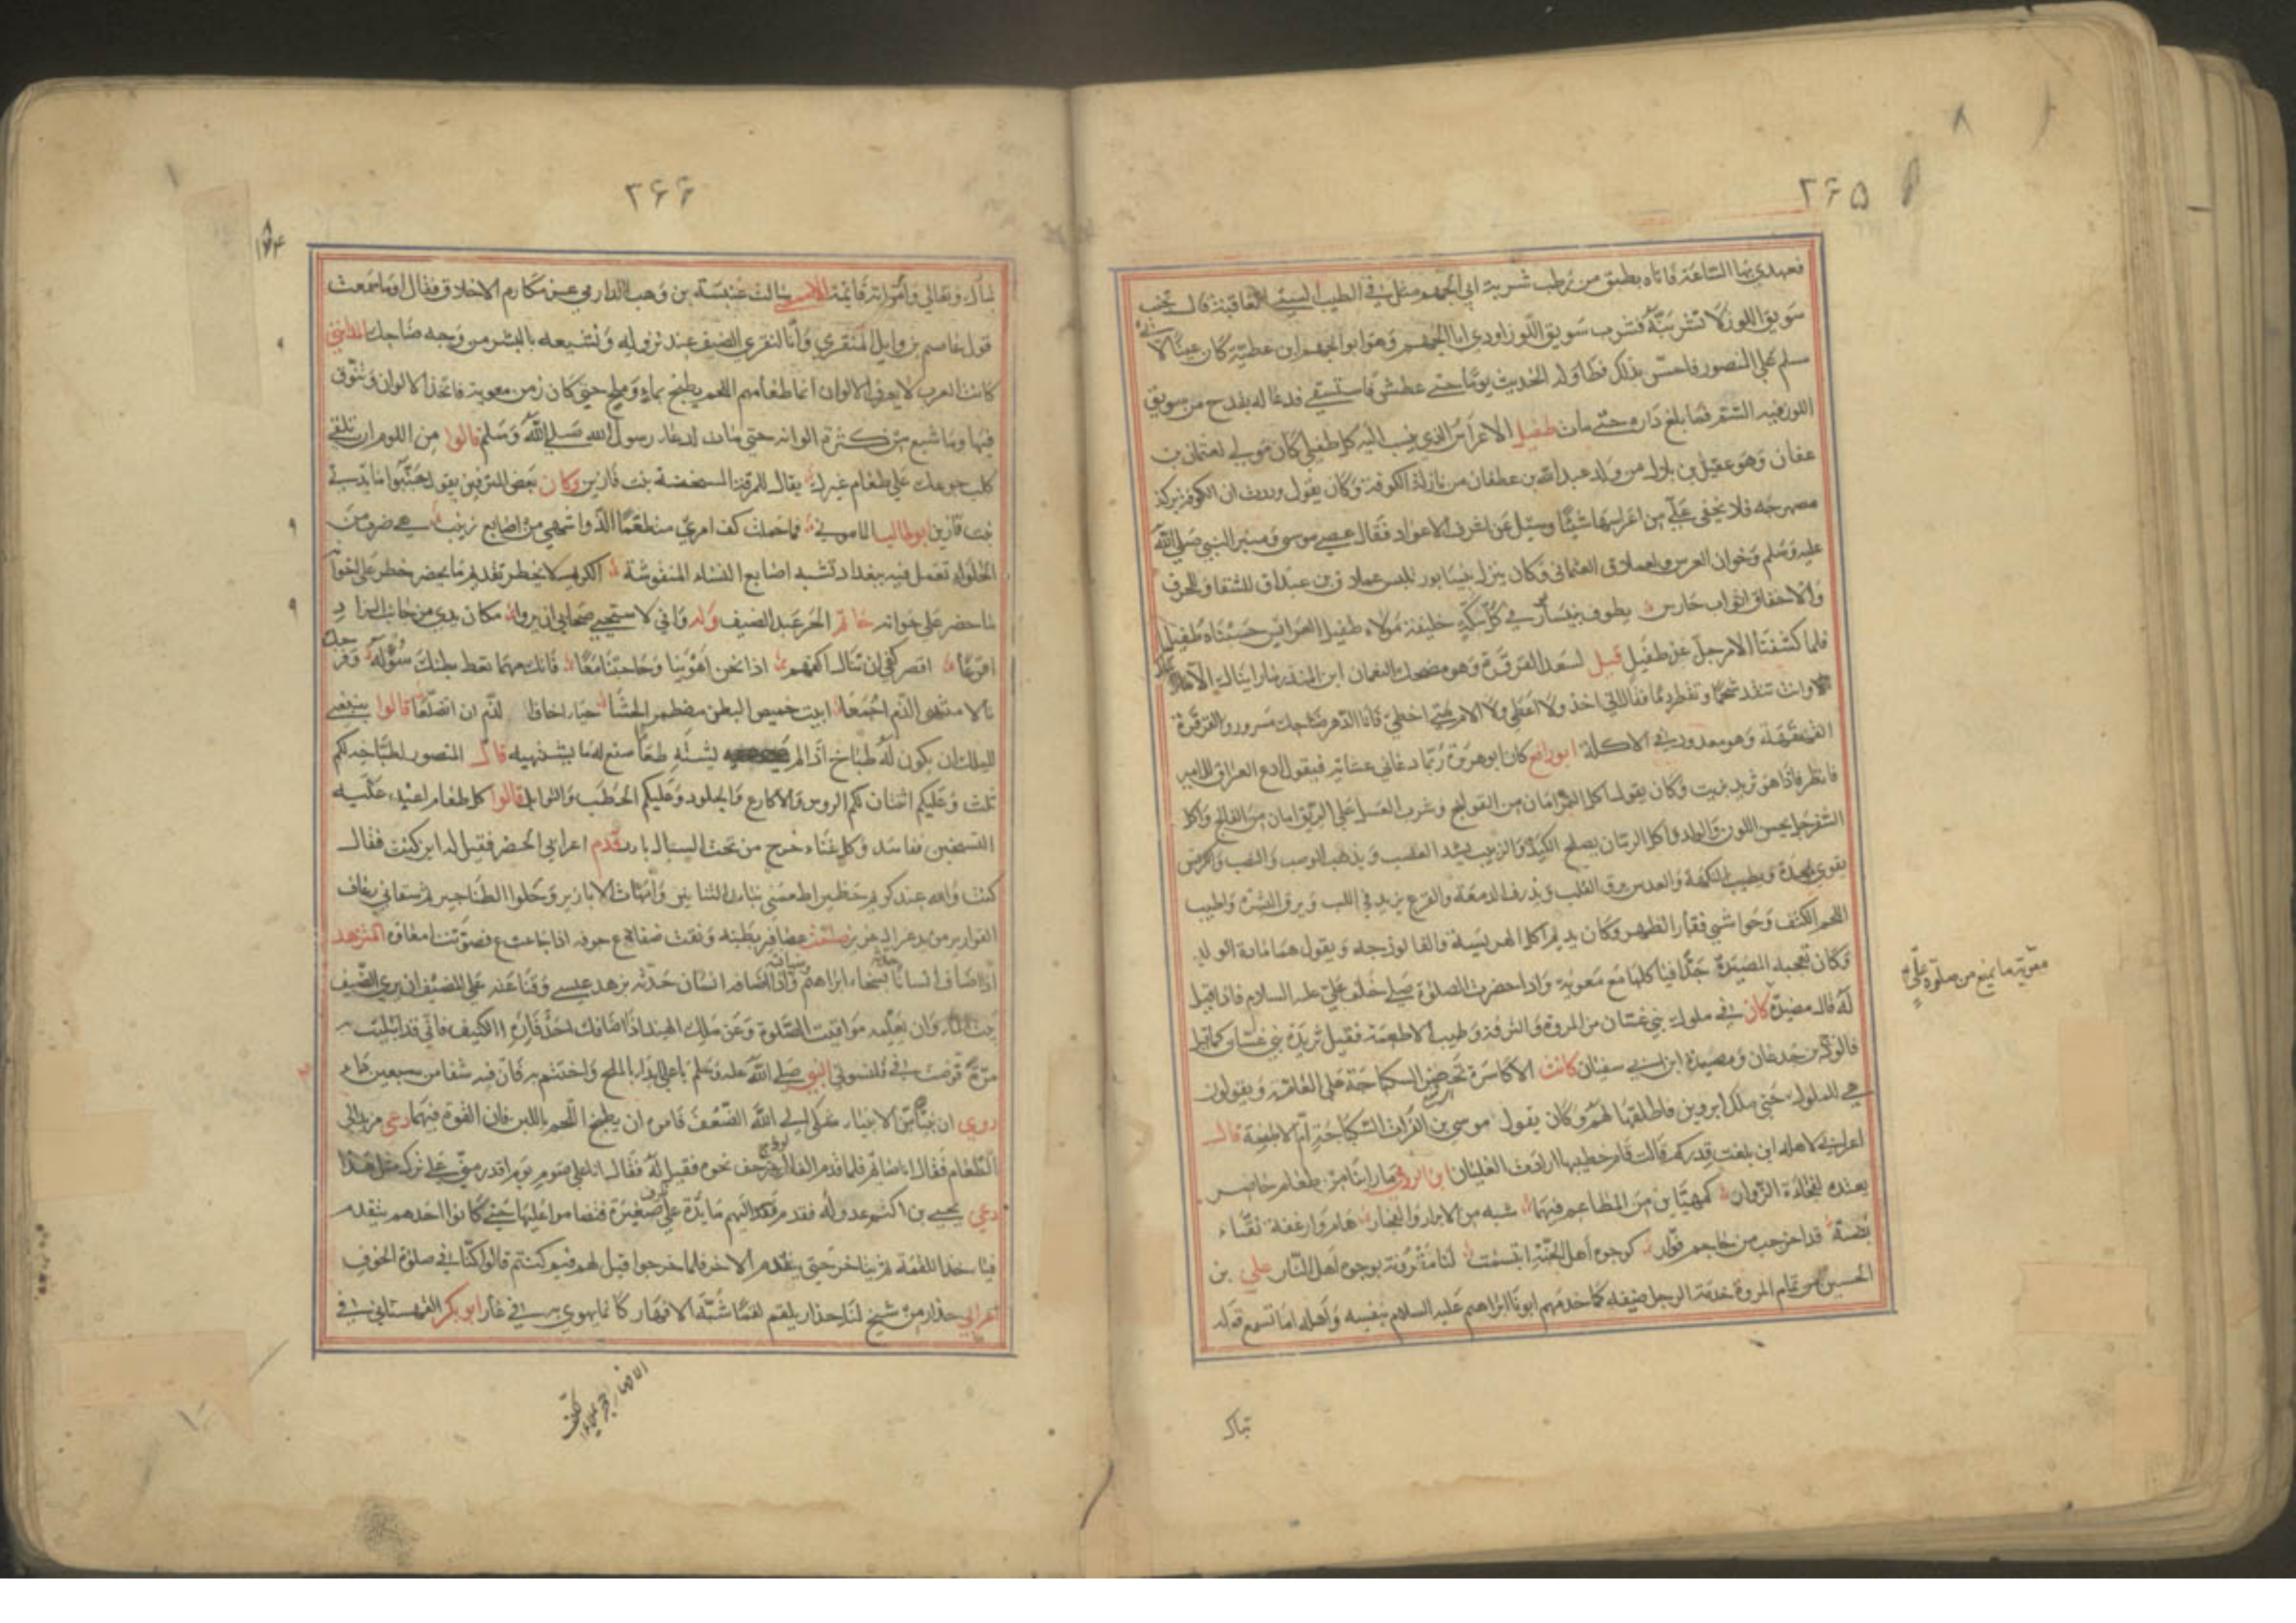 ٢۶۵
فعهدي بها الساعة فاتاه بطبق من رطب شربة ابي الجهم مثل في الطيب السيئ العاقبة قال تجنب
سويق اللوز لا تشربنه فشرب سويق اللوز اودى ابا الجهم وهو ابو الجهم ابن عطية كان عينا لابي
سلم على المنصور فاحس بذلك فطاوله الحديث يوما حتى عطش فاستسقى فدعا له بقدح من سويق
اللوز فيه السم فما بلغ داره حتى مات طفيل الاعراس الذي ينسب اليه كل طفيلي كان مولى لعثمان بن
عفان وهو عقيل بن بلال من ولد عبد الله بن عطفان من نازلة الكوفة وكان يقول وددت ان الكوفة بركة
مصهرجة فلا يخفى علي من اعراسها شيئا وسئل عن اشرف الاعواد فقال عصى موسى ومنبر النبي صلى الله
عليه وسلم وخوان العرس
والاخفاق اثواب حارس يطوف بنيسابور في كل سكة خليفة مولاه طفيل العرائس حسبناه طفيليا
فلما كشفنا الامر جل عن طفيل قيل لسعد القرقرة وهو مضحك النعمان ابن المنذر ما رايناك الا
وانت تنقد شحما وتقطر دما فقال لاني اخذ ولا اعطي ولا الام حتى اخطئ فانا الدهر ضاحك مسرور والقرقرة
القهقهة وهو معدود في الاكلة ابو رافع كان ابو هريرة ربما دعاني عشائه فيقول دع العراق للامير
فانظر فاذا هو ثريد بزيت وكان يقول اكل التمر امان من القولنج وشرب العسل على الريق امان من الفالج واكل
السفرجل يحسن اللون والولد واكل الرمان يصلح الكبد والزبيب يشد العصب ويذهب الوصب والنصب والكرفس
يقوي المعدة ويطيب النكهة والعدس يرق القلب ويذرف الدمعة والقرع يزيد في اللب ويرق البشرة واطيب
اللحم الكتف وحواشي فقار الظهر وكان يديم اكل الهريسة والفالوذجه ويقول هما مادة الولد
وكان تعجبه المضيرة جدا فياكلها مع معوية واذا حضرت الصلوة صلى خلف علي عليه السلام فاذا قيل
له قال مضيرة كان في ملوك بني غسان من المروة والترفة وطيب الاطعمة فقيل ثريدة بني غسان كما قيل
فالوذج بن جدعان ومضيرة ابن ابي سفيان كانت الاكاسرة تحضر السكباجة على العامة ويقولون
هي للملوك حتى ملك ابرويز فاطلقها لهم وكان يقول موسى بن الفرات السكباجة ام الاطعمة قال
اعرابي لاهله اين بلغت قدركم قالت قام خطيبها ارادت الغليان ابن الرومي ما راينا من طعام حاضر
يعتده لفجاءة الزوان كمهيئاين من المطاعم فيهما شبه من الابرار والفجار هام وارغفة نقاء
بضة قد اخرجت من جاحم فوار كوجوه اهل الجنة ابتسمت لنا مقرونة بوجوه اهل النار علي بن
الحسين من تمام المروة خدمة الرجل ضيفه كما خدمهم ابونا ابراهيم عليه السلام بنفسه واهله اما تسمع قوله
معوية ما يمنع من صلوة علي
تبارك
٢۶۶
تبارك وتعالى وامراته قائمة الاصمعي سالت عنبسة بن وهب الدارمي عن مكارم الاخلاق فقال اوما سمعت
قول عاصم بن وايل المنقري وانا لنقري الضيف عند نزوله ونشبعه بالبشر من وجه ضاحك المدايني
كانت العرب لا يعرف الالوان انما طعامهم اللحم يطبخ بماء وملح حتى كان زمن معوية فاتخذ الالوان وتنوق
فيها وما شبع من كثرة الوانه حتى مات لدعاء رسول الله صلى الله وسلم قالوا من اللوم ان تلقي
كلب جوعك على طعام غيرك يقال للمرقة المسخنة بنت نارين وكان بعض المترفين يقول جنبوا مائدتي
بنت نارين ابو طالب الماموني فما حملت كف امرئ متطعما الذ واشهى من اصابع زينب هي ضرب من
الحلواء تعمل فيه ببغداد تشبه اصابع النساء المنقوشة الكريم لا يحظر تقديم ما يحضر خطر على اخوانه
ما حضر على خوانه حاتم الحر عبد الضيف وله واني لاستحيي صحابي ان يروا مكان يدي من جانب الزاد
اقرعا اقصر كفي ان تنال اكفهم اذا نحن اهوينا وحاجتنا معا فانك مهما تعط بطنك سؤله وفرجك
نالا منتهى الذم اجمعا ابيت خميص البطن مضطمر الحشا حياء اخاف الذم ان اتضلعا قالوا ينبغي
للملك ان يكون له طباخ اذا لم يشته طعاما صنع له ما يشتهيه قال المنصور لطباخه لكم
ثلث وعليكم اثنتان لكم الروس والاكارع والجلود وعليكم الحطب والتوابل قالوا كل طعام اعيد عليه
التسخين فاسد وكل غناء خرج من تحت السبال بارد قدم اعرابي الحضر فقيل له اين كنت فقال
كنت والله عند كريم
اذا اضاف انسانا
بيت الماء وان يعلمه مواقيت الصلوة وعن ملك الهند اذا اضافك احد فاره الكنيف فاني قد ابتليت
مرة فوضعت في قلنسوتي النبي صلى الله عليه وسلم يا علي ابدا بالملح واختتم به فان فيه شفا من سبعين داء
روي ان نبيا من الانبياء شكى الى الله الضعف فامره ان يطبخ اللحم باللبن فان القوة فيهما دعي مزبد الى
الطعام فقال انا صائم فلما قدم الفالوذج زحف نحوه فقيل له فقال انا على صوم يوم اقدر مني على ترك مثل هذا
دعي يحيى بن اكثم عدو له فقدم اليهم مائدة صغيرة فتضاموا عليها حتى كانوا احدهم يتقدم
فياخذ اللقمة ثم يتاخر حتى يتقدم الاخر فلما خرجوا قيل لهم فيم كنتم قالوا كنا في صلوة الخوف
اعرابي حذار من شيخ لنا حذار يلقم لقما شبه الافهار كانما يهوي به في غار ابو بكر القهستاني في